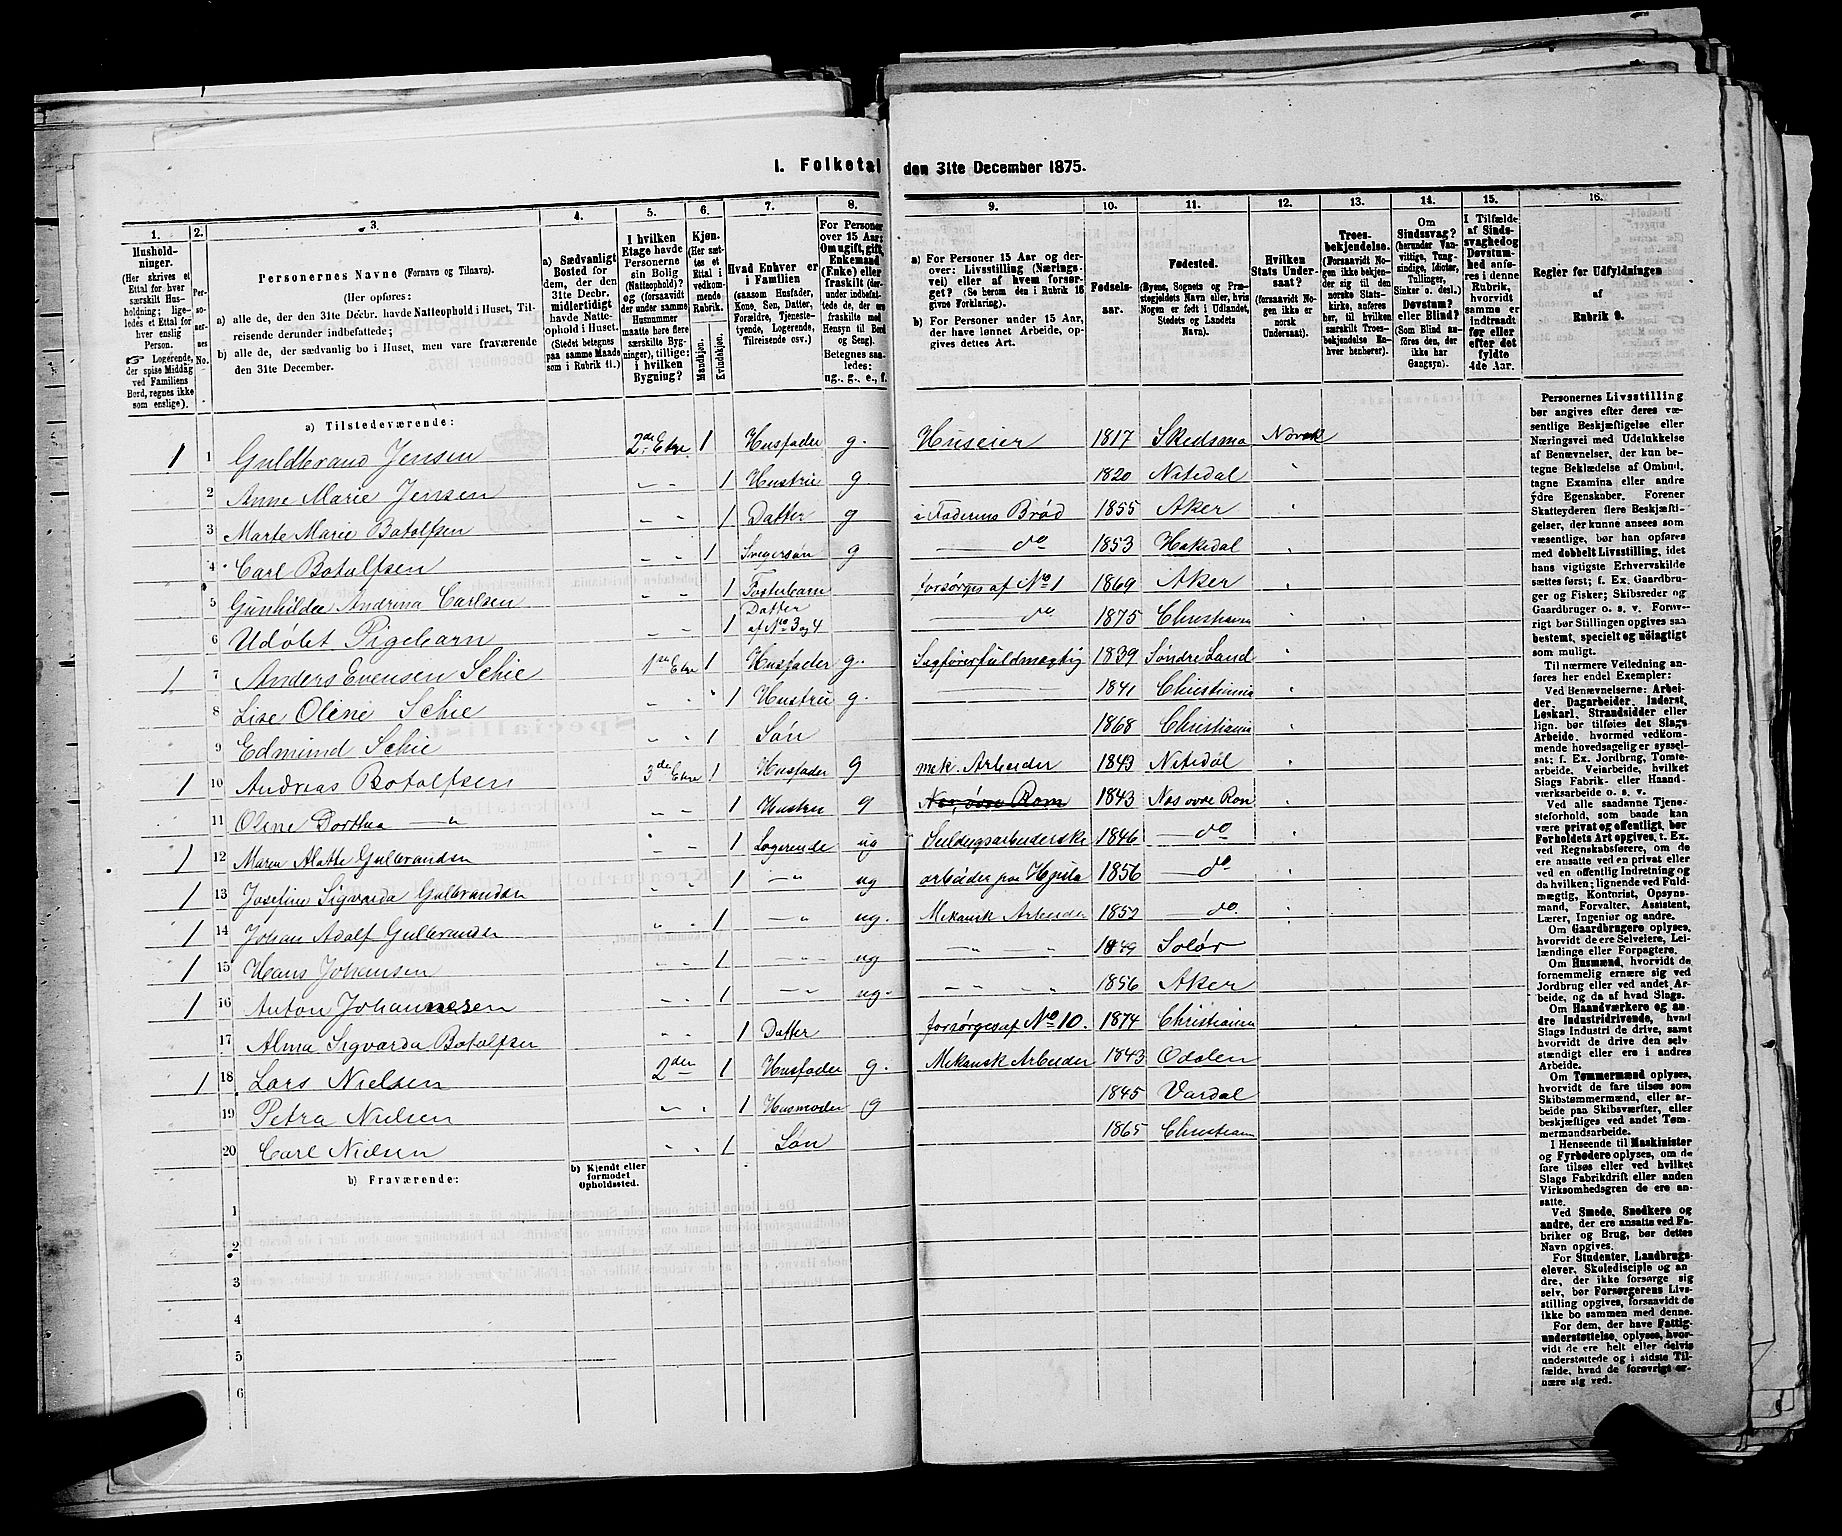 I. Folketal den 31te December 1875.
1. 2. 3. 4. 5. 6. 7. 8. 9. 10. 11. 12. 13. 14. 15. 16.
Hushold-
ninger.
(Her skrives et
Ettal for hver
særskilt Hus-
holdning; lige-
ledes et Ettal for
hver enslig
Person.
☞ Logerende,
der spise Middag
ved Familiens
Bord, regnes ikke
som enslige).
Per-
so-
ner-
nes
No.
Personernes Navne (Fornavn og Tilnavn).
(Her opføres:
a) alle de, der den 31te Decbr. havde Natteophold i Huset, Til-
reisende derunder indbefattede;
b) alle de, der sædvanlig bo i Huset, men vare fraværende
den 31te December.
a) Sædvanligt
Bosted for
dem, der den
31te Decbr.
midlertidigt
havde Natte-
ophold i Huset.
(Stedet betegnes
paa samme Maade
som i Rubrik 11.)
I hvilken
Etage havde
Personerne
sin Bolig
(Natteophold)?
og (forsaavidt
der under samme
Husnummer
maatte høre flere
særskilte Byg-
ninger), tillige:
i hvilken
Bygning?
Kjøn.
(Her sæt-
tes et
Ettal i
vedkom-
mende
Rubrik.
Mandkjøn.
Kvindekjøn.
Hvad Enhver er
i Familien
(saasom Husfader,
Kone, Søn, Datter,
Forældre, Tjeneste-
tyende, Logerende,
Tilreisende osv.)
For Personer
over 15 Aar;
Om ugift, gift,
Enkemand
(Enke) eller
fraskilt
Betegnes saa-
ledes:
ug., g., e., f.
a) For Personer 15 Aar og der-
over: Livsstilling (Nærings-
vei) eller af hvem forsør-
get? (Se herom den i Rubrik 16
givne Forklaring).
b) For Personer under 15 Aar,
der have lønnet Arbeide, op-
gives dettes Art.
Fødsels-
aar.
Fødested.
(Byens, Sognets og Præ-
stegjeldets Navn eller, hvis
Nogen er født i Udlandet,
Stedets og Landets
Navn).
Hvilken
Stats Under-
saat?
(forsaavidt No-
gen ikke er
norsk
Undersaat).
Troes-
bekjendelse.
(Forsaavidt No-
gen ikke bekjen-
der sig til den
norske Stats-
kirke, anføres
her, til hvilken
særskilt Troes-
bekjendelse En-
hver henhører).
Om
Sindssvag?
(herunder Van-
vittige, Tung-
sindige, Idioter,
Tullinger,
Sinker o. desl.)
Døvstum?
eller Blind?
(Som Blind an-
føres den, der
ikke har
Gangsyn).
I Tilfælde
af Sinds-
svaghed og
Døvstum-
hed anfø-
res i denne
Rubrik,
hvorvidt
samme er
indtraadt
før eller
efter det
fyldte
4de Aar.
Regler for Udfyldningen
af
Rubrik 9.
a) Tilstedeværende:
1 1 Guldbrand Jensen 2den Etge 1 Husfader g. Huseier 1817 Skedsmo Norsk
2 Anne Marie Jensen " " 1 Hustru g 1820 Nitedal "
3 Marte Marie Botolfsen " " 1 Datter g i Faderens Brød 1855 Aker "
4 Carl Botolfsen " " 1 Svigersøn g do 1853 Hakedal "
5 Gunhilde Andrina Carlsen " " 1 Fosterbarn forsørges af No 1 1869 Aker "
6 Udøbt Pigebarn " " 1 Datter af No 3 og 4 do 1875 Christiania "
1 7 Anders Evensen Schie 1ste Etge 1 Husfader g. Sagførerfuldmægtig 1839 Søndre Land "
8 Lise Oline Schie " " 1 Hustru g. 1841 Christiania "
9 Edmund Schie " " 1 Søn 1868 Christiania "
1 10 Andreas Botolfsen 3de Etge 1 Husfader g mek. Arbeider 1843 Nitedal "
11 Oline Dorthea —"— " " 1 Hustru g 1843 Nes øvre Rom "
1 12 Maren Alette Gulbrandsen " " 1 Logerende ug 1846 do "
1 13 Josefine Sigvarda Gulbrandsen " " 1 " ug 1856 do "
1 14 Johan Adolf Gulbrandsen " " 1 " ug. Mekanisk Arbeider do. "
1 15 Hans Johansen " " 1 " ug " " 1849 Solør
1 16 Anton Johannesen " " 1 " ug. " " " 1856 Aker
17 Alma Sigvarda Botolfsen " " 1 Datter forsørges af No 10. 1874 Christiania
1 18 Lars Nielsen 2den 1 Husfader g. Mekanisk Arbeider 1843 Odalen
19 Petra Nielsen " " 1 Husmoder g 1845 Vardal
20 Carl Nielsen " " 1 Søn 1865 Christiania
b) Fraværende:
b) Kjendt eller
formodet
Opholdssted.
1
2
3
4
5
6
Personernes Livsstilling
bør angives efter deres væ-
sentlige Beskjæftigelse eller
Næringsvei med Udelukkelse
af Benævnelser, der kun be-
tegne Beklædelse af Ombud,
tagne Examina eller andre
ydre Egenskaber. Forener
Skatteyderen flere Beskjæfti-
gelser, der kunne ansees som
væsentlige, bør han opføres
med dobbelt Livsstilling, idet
hans vigtigste Erhvervskilde
sættes først; f. Ex. Gaardbru-
ger og Fisker; Skibsreder og
Gaardbruger o. s. v. Forøv-
rigt bør Stillingen opgives saa
bestemt, specielt og nøiagtigt
som muligt.
Til nærmere Veiledning an-
føres her endel Exempler:
Ved Benævnelserne: Arbei-
der, Dagarbeider, Inderst,
Løskarl, Strandsidder eller
lign. bør tilføies det Slags
Arbeide, hvormed vedkom-
mende hovedsagelig er syssel-
sat; f. Ex. Jordbrug, Tomte-
arbeide, Veiarbeide, hvilket
Slags Fabrik- eller Haand-
værksarbeide o. s. v.
Ved alle saadanne Tjene-
steforhold, som baade kan
være privat og offentligt, bør
Forholdets Art opgives, t. Ex.
ved Regnskabsførere, om de
ere ansatte ved en privat eller
ved en offentlig Indretning og
da hvilken; lignende ved Fuld-
mægtig, Kontorist, Opsyns-
mand, Forvalter, Assistent,
Lærer, Ingeniør og andre.
Om Gaardbrugere oplyses,
hvorvidt de ere Selveiere, Lei-
lændinge eller Forpagtere.
Om Husmænd, hvorvidt de
fornemmelig ernære sig ved
Jordbrug eller ved andet Ar-
beide, og da af hvad Slags.
Om Haandværkere og an-
dre Industridrivende, hvad
Slags Industri de drive, samt
hvorvidt de drive den selv-
stændigt eller ere i andres
Arbeide.
Om Tømmermænd oplyses,
hvorvidt de fare tilsøs som
Skibstømmermænd, eller ar-
beide paa Skibsværfter, eller
beskjæftiges ved andet Tøm-
mermandsarbeide.
I Henseende til Maskinister
og Fyrbødere oplyses, om de
fare tilsøs eller ved hvilket
Slags Fabrikdrift eller anden
Virksomhedsgren de ere an-
satte.
Ved Smede, Snedkere og
andre, der ere ansatte ved Fa-
briker og Brug, bør dettes
Navn opgives.
For Studenter, Landbrugs-
elever, Skoledisciple og an-
dre, der ikke forsørge sig
selv, bør Forsørgerens Livs-
stilling opgives, forsaavidt de
ikke bo sammen med denne.
For dem, der have Fattig-
understøttelse, oplyses, hvor-
vidt de ere helt eller delvis
understøttede og i sidste Til-
fælde, hvad de forøvrigt er-
nære sig ved.